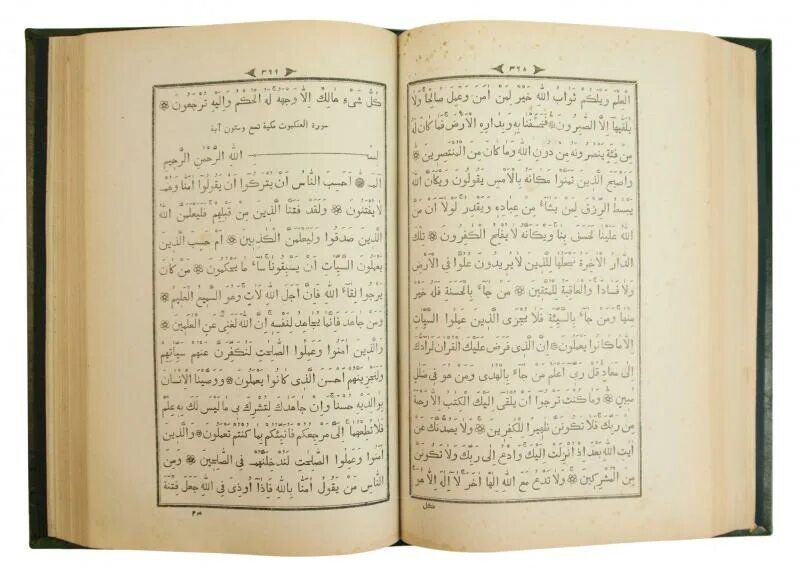 ٣٢٨
الْعِلْمَ وَيْلَكُمْ ثَوَابُ اللّٰهِ خَيْرٌ لِمَنْ اٰمَنَ وَعَمِلَ صَالِحًا وَلَا
يُلَقّٰيهَا اِلَّا الصَّابِرُونَ ۞ فَخَسَفْنَا بِهِ وَبِدَارِهِ الْاَرْضَ فَمَا كَانَ لَهُ
مِنْ فِئَةٍ يَنْصُرُونَهُ مِنْ دُونِ اللّٰهِ وَمَا كَانَ مِنَ الْمُنْتَصِرِينَ ۞
وَاَصْبَحَ الَّذِينَ تَمَنَّوْا مَكَانَهُ بِالْاَمْسِ يَقُولُونَ وَيْكَاَنَّ اللّٰهَ
يَبْسُطُ الرِّزْقَ لِمَنْ يَشَاءُ مِنْ عِبَادِهِ وَيَقْدِرُ لَوْلَا اَنْ مَنَّ
اللّٰهُ عَلَيْنَا لَخَسَفَ بِنَا وَيْكَاَنَّهُ لَا يُفْلِحُ الْكٰفِرُونَ ۞ تِلْكَ
الدَّارُ الْاٰخِرَةُ نَجْعَلُهَا لِلَّذِينَ لَا يُرِيدُونَ عُلُوًّا فِي الْاَرْضِ
وَلَا فَسَادًا وَالْعَاقِبَةُ لِلْمُتَّقِينَ ۞ مَنْ جَاءَ بِالْحَسَنَةِ فَلَهُ خَيْرٌ
مِنْهَا وَمَنْ جَاءَ بِالسَّيِّئَةِ فَلَا يُجْزَى الَّذِينَ عَمِلُوا السَّيِّاٰتِ
اِلَّا مَا كَانُوا يَعْمَلُونَ ۞ اِنَّ الَّذِي فَرَضَ عَلَيْكَ الْقُرْاٰنَ لَرَادُّكَ
اِلٰى مَعَادٍ قُلْ رَبِّي اَعْلَمُ مَنْ جَاءَ بِالْهُدٰى وَمَنْ هُوَ فِي ضَلٰلٍ
مُبِينٍ ۞ وَمَا كُنْتَ تَرْجُوا اَنْ يُلْقٰى اِلَيْكَ الْكِتٰبُ اِلَّا رَحْمَةً
مِنْ رَبِّكَ فَلَا تَكُونَنَّ ظَهِيرًا لِلْكٰفِرِينَ ۞ وَلَا يَصُدُّنَّكَ عَنْ
اٰيٰتِ اللّٰهِ بَعْدَ اِذْ اُنْزِلَتْ اِلَيْكَ وَادْعُ اِلٰى رَبِّكَ وَلَا تَكُونَنَّ
مِنَ الْمُشْرِكِينَ ۞ وَلَا تَدْعُ مَعَ اللّٰهِ اِلٰهًا اٰخَرَ لَا اِلٰهَ اِلَّا هُوَ
كل
٣٢٩
كُلُّ شَيْءٍ هَالِكٌ اِلَّا وَجْهَهُ لَهُ الْحُكْمُ وَاِلَيْهِ تُرْجَعُونَ ۞
سورة العنكبوت مكية تسع وستون آية
بسم اللّٰهِ الرَّحْمٰنِ الرَّحِيمِ
الٓمٓ ۞ اَحَسِبَ النَّاسُ اَنْ يُتْرَكُوا اَنْ يَقُولُوا اٰمَنَّا وَهُمْ
لَا يُفْتَنُونَ ۞ وَلَقَدْ فَتَنَّا الَّذِينَ مِنْ قَبْلِهِمْ فَلَيَعْلَمَنَّ اللّٰهُ
الَّذِينَ صَدَقُوا وَلَيَعْلَمَنَّ الْكٰذِبِينَ ۞ اَمْ حَسِبَ الَّذِينَ
يَعْمَلُونَ السَّيِّاٰتِ اَنْ يَسْبِقُونَا سَاءَ مَا يَحْكُمُونَ ۞ مَنْ كَانَ
يَرْجُوا لِقَاءَ اللّٰهِ فَاِنَّ اَجَلَ اللّٰهِ لَاٰتٍ وَهُوَ السَّمِيعُ الْعَلِيمُ ۞
وَمَنْ جَاهَدَ فَاِنَّمَا يُجَاهِدُ لِنَفْسِهِ اِنَّ اللّٰهَ لَغَنِيٌّ عَنِ الْعٰلَمِينَ ۞
وَالَّذِينَ اٰمَنُوا وَعَمِلُوا الصّٰلِحٰتِ لَنُكَفِّرَنَّ عَنْهُمْ سَيِّاٰتِهِمْ
وَلَنَجْزِيَنَّهُمْ اَحْسَنَ الَّذِي كَانُوا يَعْمَلُونَ ۞ وَوَصَّيْنَا الْاِنْسَانَ
بِوَالِدَيْهِ حُسْنًا وَاِنْ جَاهَدَاكَ لِتُشْرِكَ بِي مَا لَيْسَ لَكَ بِهِ عِلْمٌ
فَلَا تُطِعْهُمَا اِلَيَّ مَرْجِعُكُمْ فَاُنَبِّئُكُمْ بِمَا كُنْتُمْ تَعْمَلُونَ ۞ وَالَّذِينَ
اٰمَنُوا وَعَمِلُوا الصّٰلِحٰتِ لَنُدْخِلَنَّهُمْ فِي الصّٰلِحِينَ ۞ وَمِنَ
النَّاسِ مَنْ يَقُولُ اٰمَنَّا بِاللّٰهِ فَاِذَا اُوذِيَ فِي اللّٰهِ جَعَلَ فِتْنَةَ